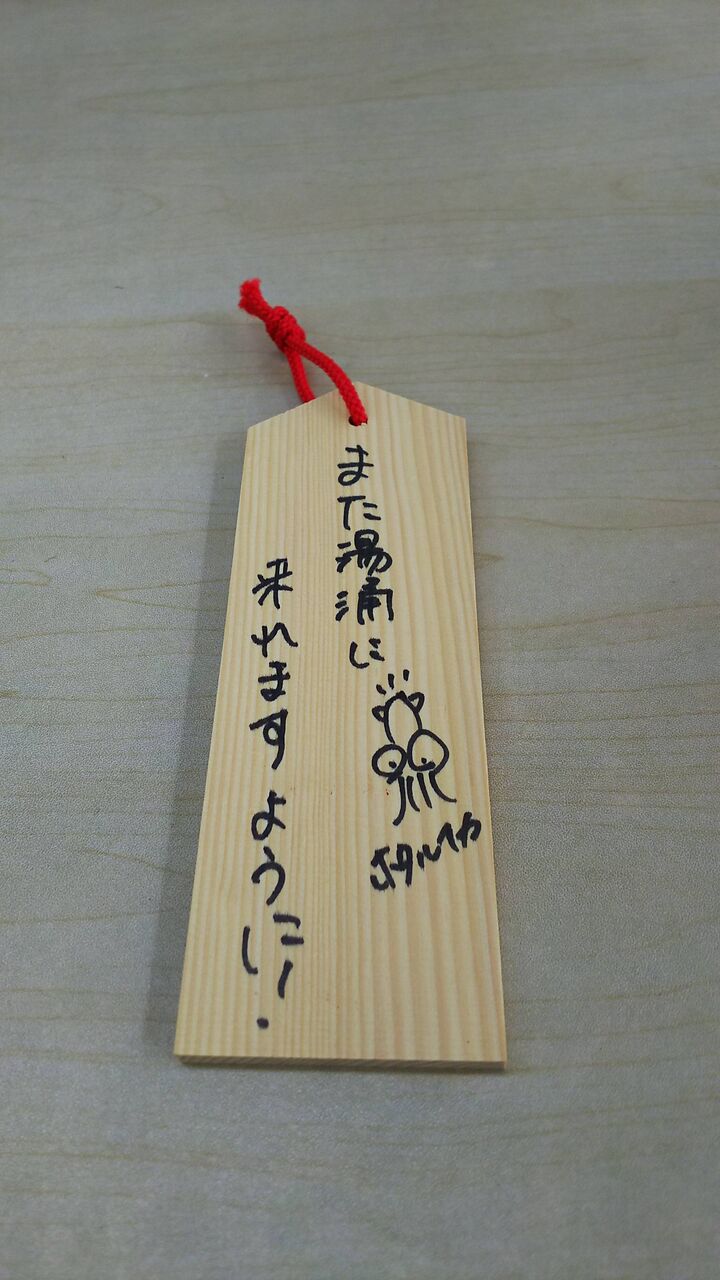 また湯涌に
来れますように!
ホタルイカ